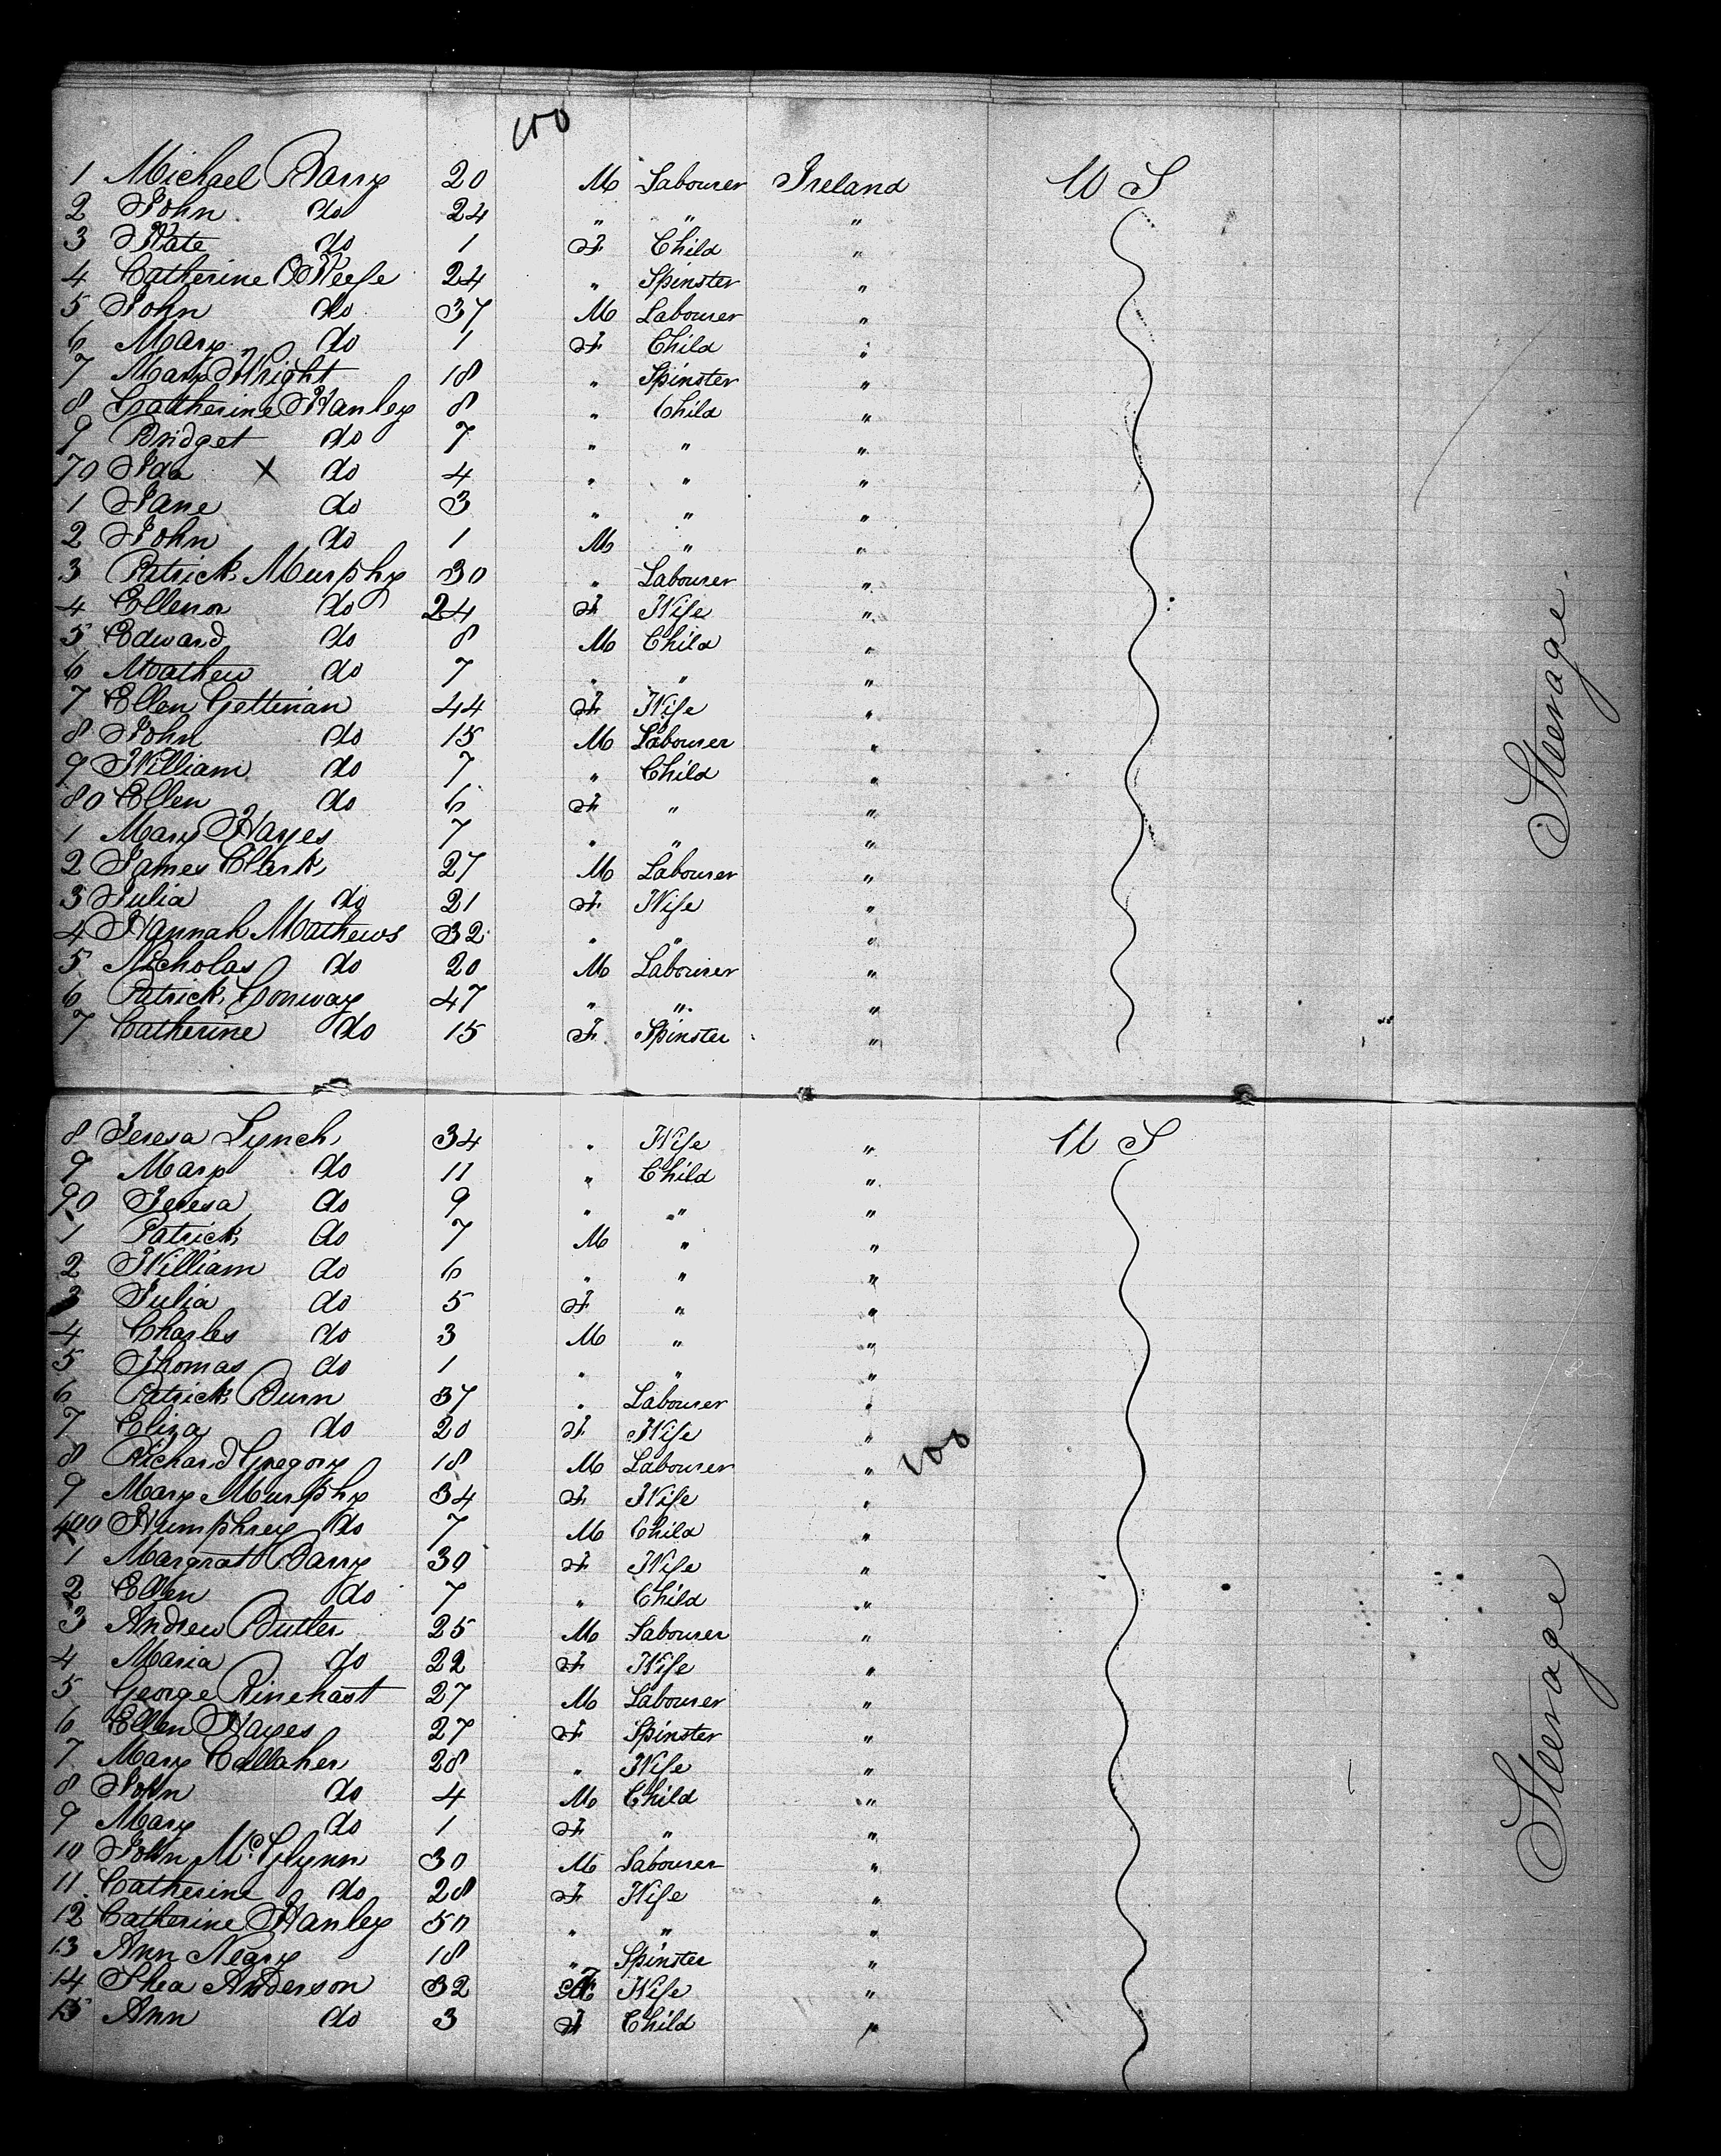 100
1 Michael Barry 20 M Labourer Ireland U S
2 John do 24 " " "
3 Kate do 1 F Child "
4 Catherine O'Keefe 24 " Spinster "
5 John do 37 M Labourer "
6 Mary do 1 F Child "
7 Mary Wright 18 " Spinster "
8 Catherine Hanley 8 " Child "
9 Bridget do 7 " " "
70 Ida X do 4 " " "
1 Jane do 3 " " "
2 John do 1 M " "
3 Patrick Murphy 30 " Labourer "
4 Ellenor do 24 F Wife "
5 Edward do 8 M Child "
6 Mathew do 7 " " "
7 Ellen Gettinan 44 F Wife "
8 John do 15 M Labourer "
9 William do 7 " Child "
80 Ellen do 6 F " "
1 Mary Hayes 7 " " "
2 James Clark 27 M Labourer "
3 Julia do 21 F Wife "
4 Hannah Mathews 32 " " "
5 Nicholas do 20 M Labourer "
6 Patrick Conway 47 " " "
7 Catherine do 15 F Spinster "
Steerage
8 Teresa Lynch 34 " Wife " U S
9 Mary do 11 " Child "
90 Teresa do 9 " " "
1 Patrick do 7 M " "
2 William do 6 " " "
3 Julia do 5 F " "
4 Charles do 3 M " "
5 Thomas do 1 " " "
6 Patrick Burn 37 " Labourer "
7 Eliza do 20 F Wife "
8 Richard Gregory 18 M Labourer " 100
9 Mary Murphy 34 F Wife "
400 Humphrey do 7 M Child "
1 Margrat Barry 30 F Wife "
2 Ellen do 7 " Child "
3 Andrew Butler 25 M Labourer "
4 Maria do 22 F Wife "
5 George Rinehart 27 M Labourer "
6 Ellen Hayes 27 F Spinster "
7 Mary Callaher 28 " Wife "
8 John do 4 M Child "
9 Mary do 1 F " "
10 John McGlynn 30 M Labourer "
11 Catherine do 28 F Wife "
12 Catherine Hanley 50 " " "
13 Ann Neary 18 " Spinster "
14 Thea Anderson 32 F Wife "
15 Ann do 3 F Child "
Steerage